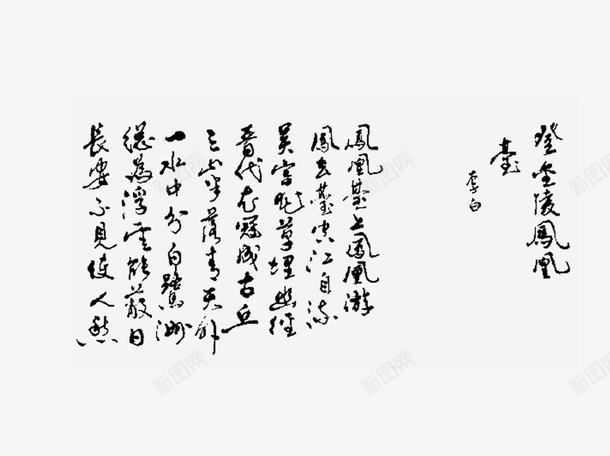 登金陵鳳凰
臺
李白
鳳凰臺上鳳凰游
鳳去臺空江自流
吳宮花草埋幽徑
晉代衣冠成古丘
三山半落青天外
一水中分白鷺洲
總為浮雲能蔽日
長安不見使人愁
新图网
新图网
新图网
新图网
新图网
新图网